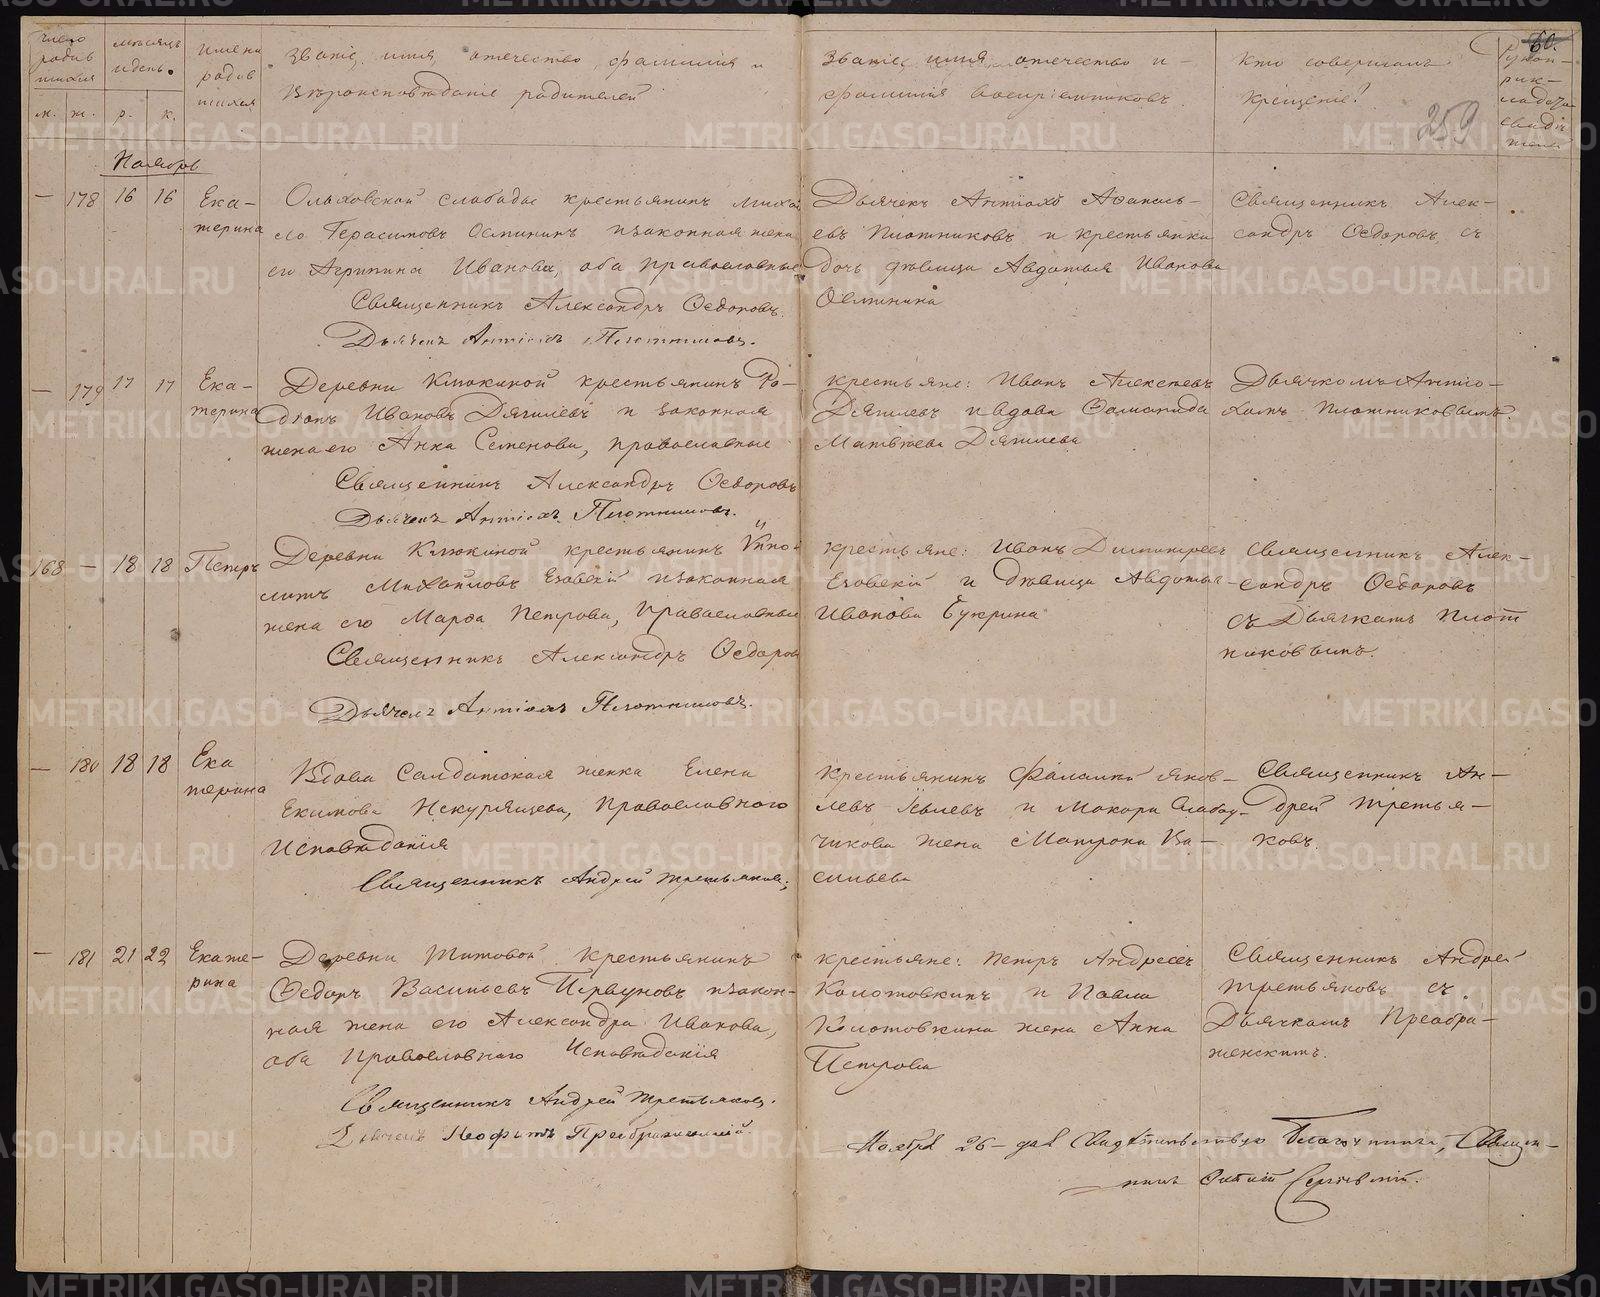 число родив шихся
мѣсяцъ и день.
имена родив шихся
Званіе, имя, отечество, фамилія и
вѣроисповѣданіе родителей
Званіе, имя, отечество и
фамилія воспріемниковъ.
Кто совершалъ
крещеніе?
60.
259
м. ж. р. к.
Ноябрь
— 178 16 16 Ека-
терина
Ольховской слободы крестьянинъ Михаи
ло Герасимовъ Овчининъ и законная жена
его Агрипина Иванова, оба православные
Священникъ Александръ Ѳедоровъ.
Дьячекъ Антіохъ Плотниковъ.
Дьячекъ Антіохъ Аѳанась-
евъ Плотниковъ и крестьянка
дочь дѣвица Авдотья Иванова
Священникъ Алек-
сандръ Ѳедоровъ съ
— 179 17 17 Ека-
терина
Деревни Клюкиной крестьянинъ Ро-
діонъ Ивановъ Дягилевъ и законная
жена его Анна Семенова, православные
Священникъ Александръ Ѳедоровъ
Дьячекъ Антіохъ Плотниковъ.
крестьяне: Иванъ Алексѣевъ
Дягилевъ и вдова Соломонида
Матвѣева Дягилева
Дьячкомъ Антіо-
хомъ Плотниковымъ.
168 — 18 18 Петръ
Деревни Клюкиной крестьянинъ Иппо-
литъ Михайловъ Езовскій и законная
жена его Марѳа Петрова, православные
Священникъ Александръ Ѳедоровъ
Дьячекъ Антіохъ Плотниковъ.
крестьяне: Иванъ Димитріевъ
Езовскій и дѣвица Авдотья
Иванова Букрина
Священникъ Алек-
сандръ Ѳедоровъ
съ Дьячкомъ Плот
никовымъ.
— 180 18 18 Ека
терина
Вдова Салдатская женка Елена
Екимова Искурящева, православнаго
исповѣданія
Священникъ Андрей Третьяковъ;
крестьянинъ Яков-
левъ и Макара
жена Матрона Ва-
сильева
Священникъ Ан-
дрей Третья-
ковъ.
— 181 21 22 Екате-
рина
Деревни Титовой крестьянинъ
Ѳедоръ Васильевъ Первуновъ и закон-
ная жена его Александра Иванова,
оба православнаго исповѣданія
Священникъ Андрей Третьяковъ.
Дьячекъ Неофитъ Преображенскій.
крестьяне: Петръ Андреевъ
Колотовкинъ и Павла
Колотовкина жена Анна
Петрова
Священникъ Андрей
Третьяковъ съ
Дьячкомъ Преобра-
женскимъ.
Ноября 26-дня Свидѣтельствую Благочинный, Священ-
никъ Сергіевскій.
METRIKI.GASO-URAL.RU